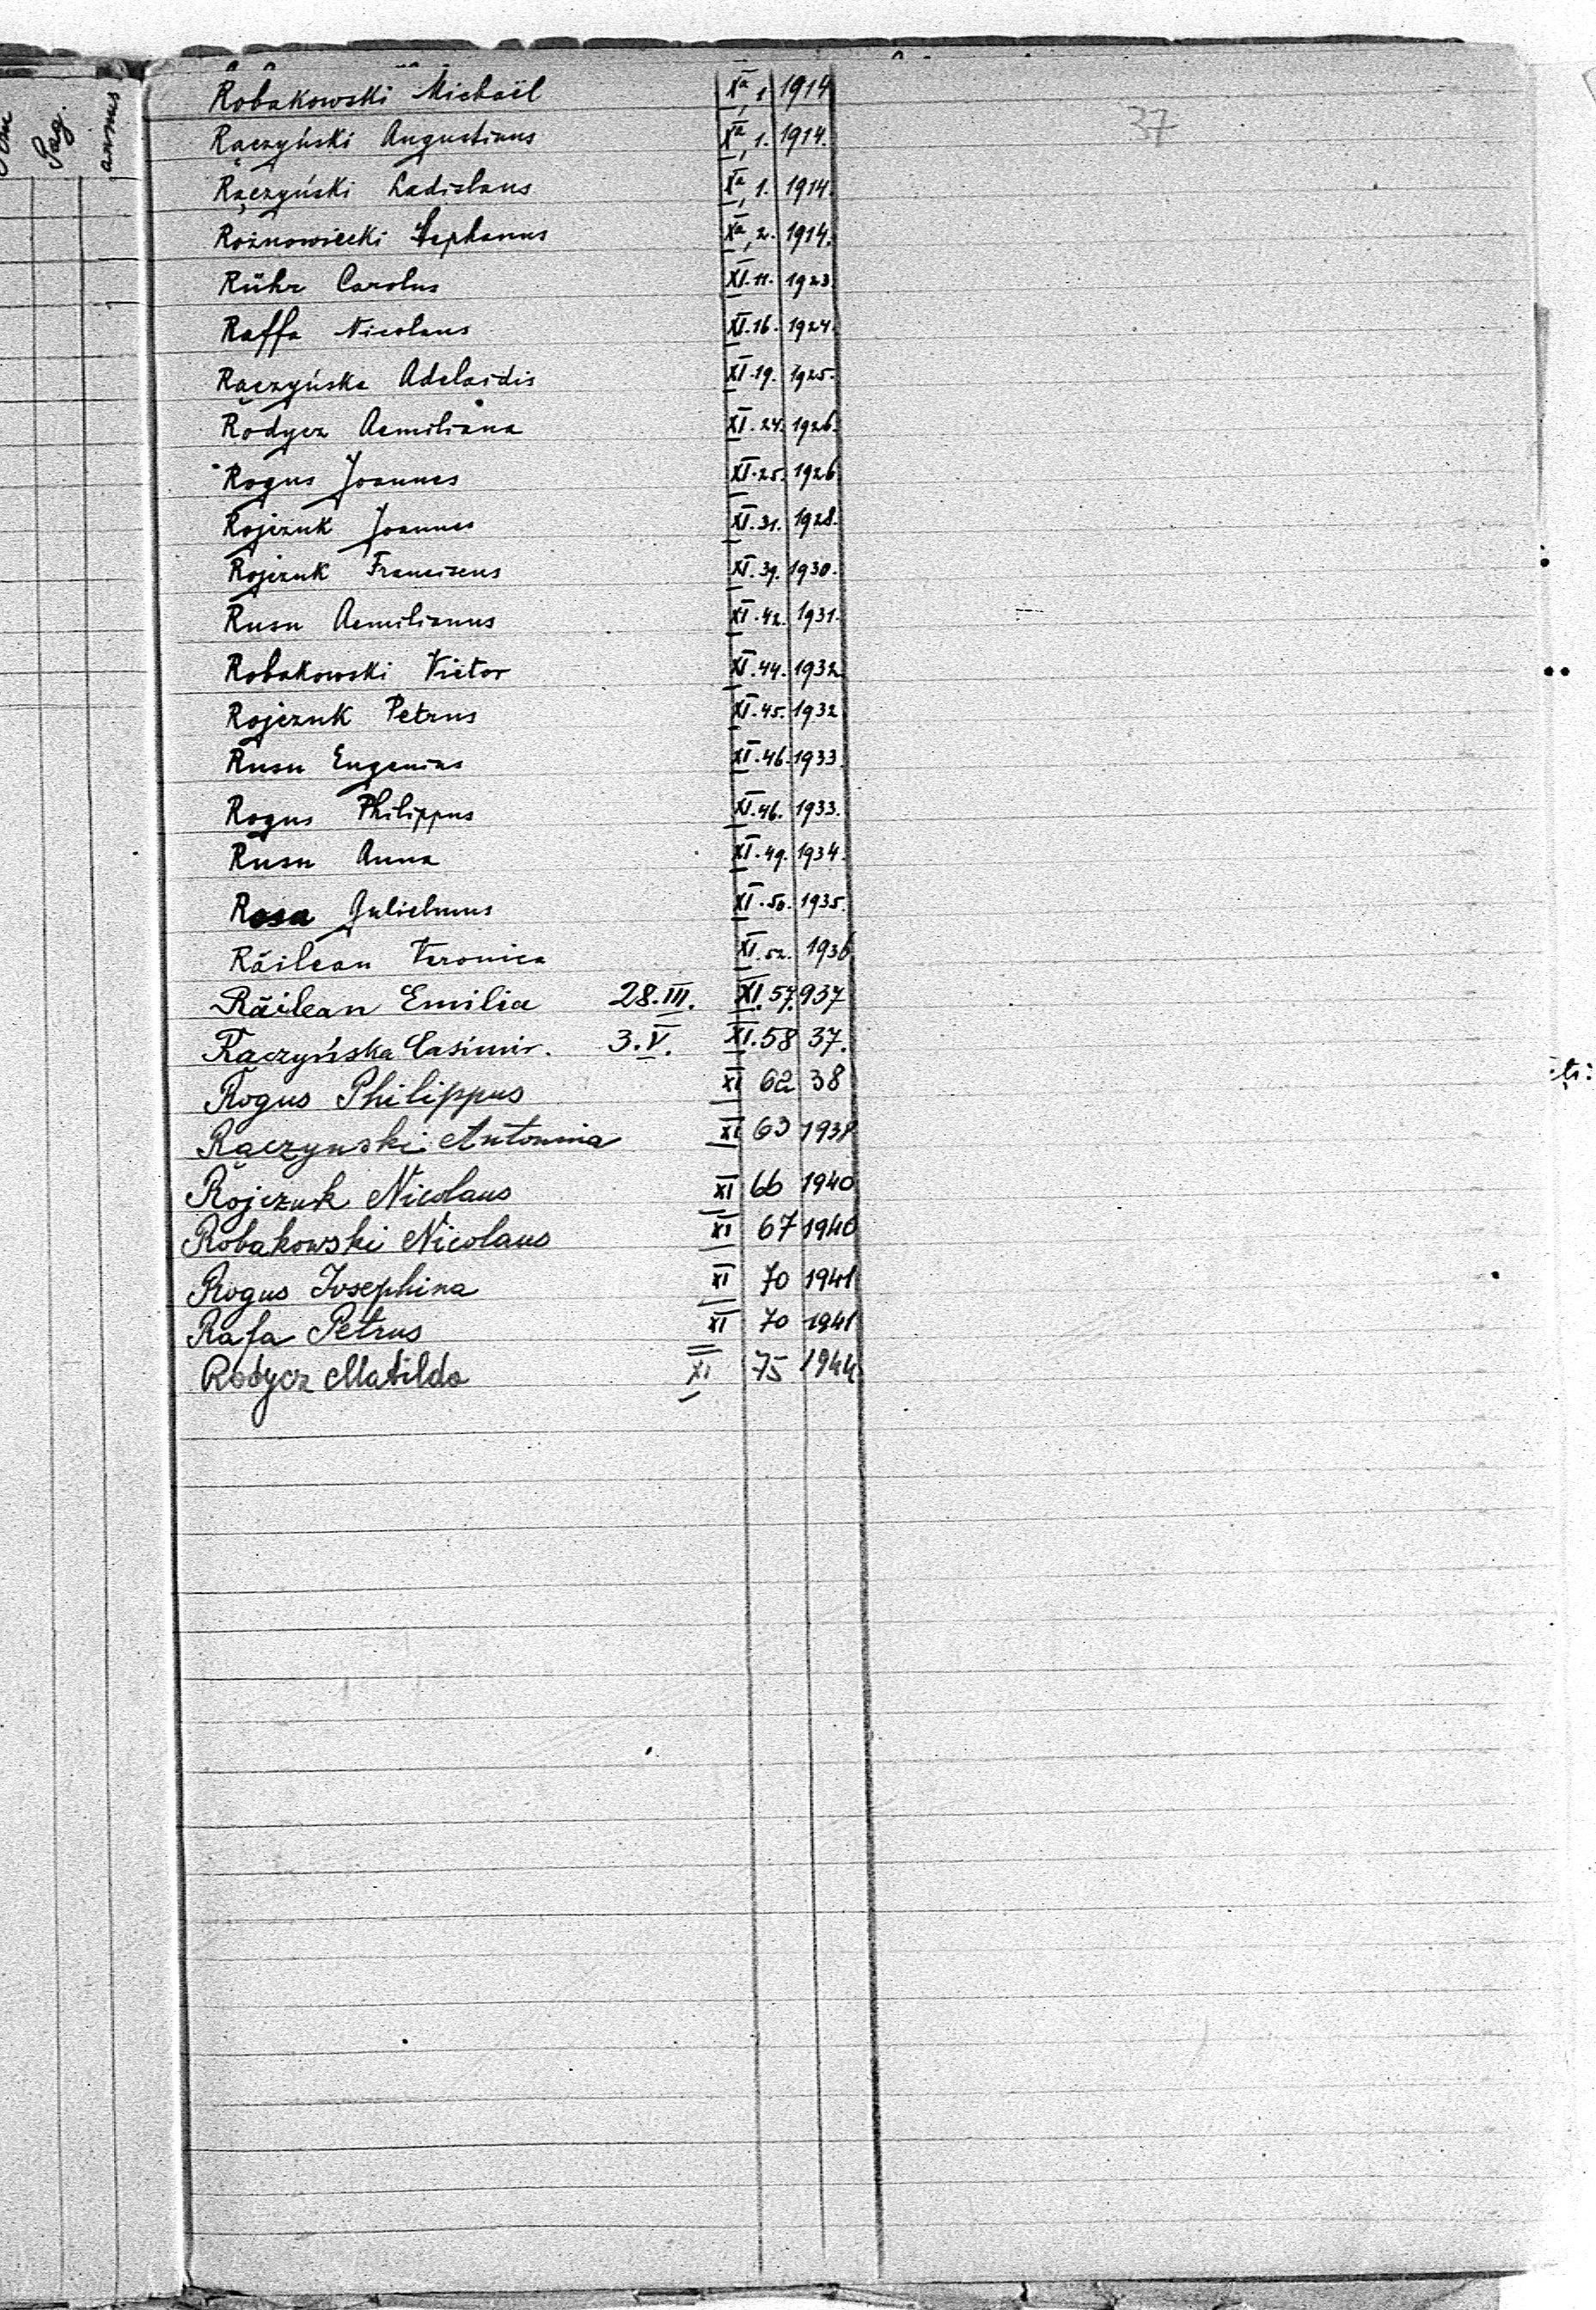 Pag.
annus
37
Robakowski Michaël Xa, 1. 1914
Rączyński Augustinus Xa, 1. 1914.
Rączyński Ladislaus Xa, 1. 1914.
Rożnowiecki Stephanus Xa, 2. 1914.
Rühr Carolus XI. 11. 1923
Raffa Nicolaus XI. 16. 1924.
Rączyńska Adelaidis XI. 19. 1925.
Rodycz Aemiliana XI. 24. 1926.
Rogus Joannes XI. 25. 1926
Rojczuk Joannes XI. 31. 1928.
Rojczuk Franciscus XI. 39. 1930.
Rusu Aemilianus XI. 42. 1931.
Robakowski Victor XI. 44. 1932
Rojczuk Petrus XI. 45. 1932
Rusu Eugenius XI. 46. 1933.
Rogus Philippus XI. 46. 1933.
Rusu Anna XI. 49. 1934.
Rosa Gulielmus XI. 50. 1935.
Răilean Veronica XI. 52. 1936
Răilean Emilia 28. III. XI. 57. 937
Rączyńska Casimir. 3. V. XI. 58 37.
Rogus Philippus XI 62 38
Rączynski Antonina XI 63 1938
Rojczuk Nicolaus XI 66 1940
Robakowski Nicolaus XI 67 1940
Rogus Josephina XI 70 1941
Rafa Petrus XI 70 1941
Rodycz Matilda XI 75 1944